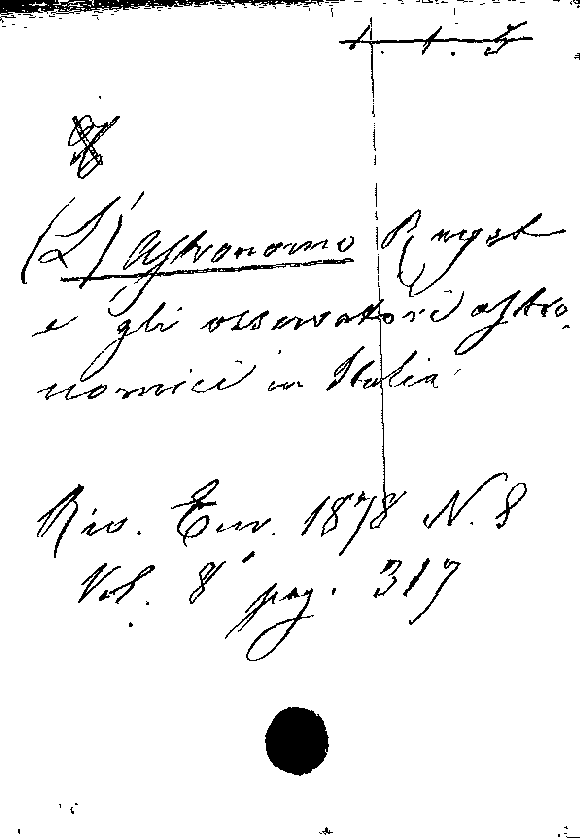 1. 1. 5
(L') astronomo Rayet
e gli osservatorî astro-
nomici in Italia
Riv. Eur. 1878 N. 8
Vol. 8° pag. 317